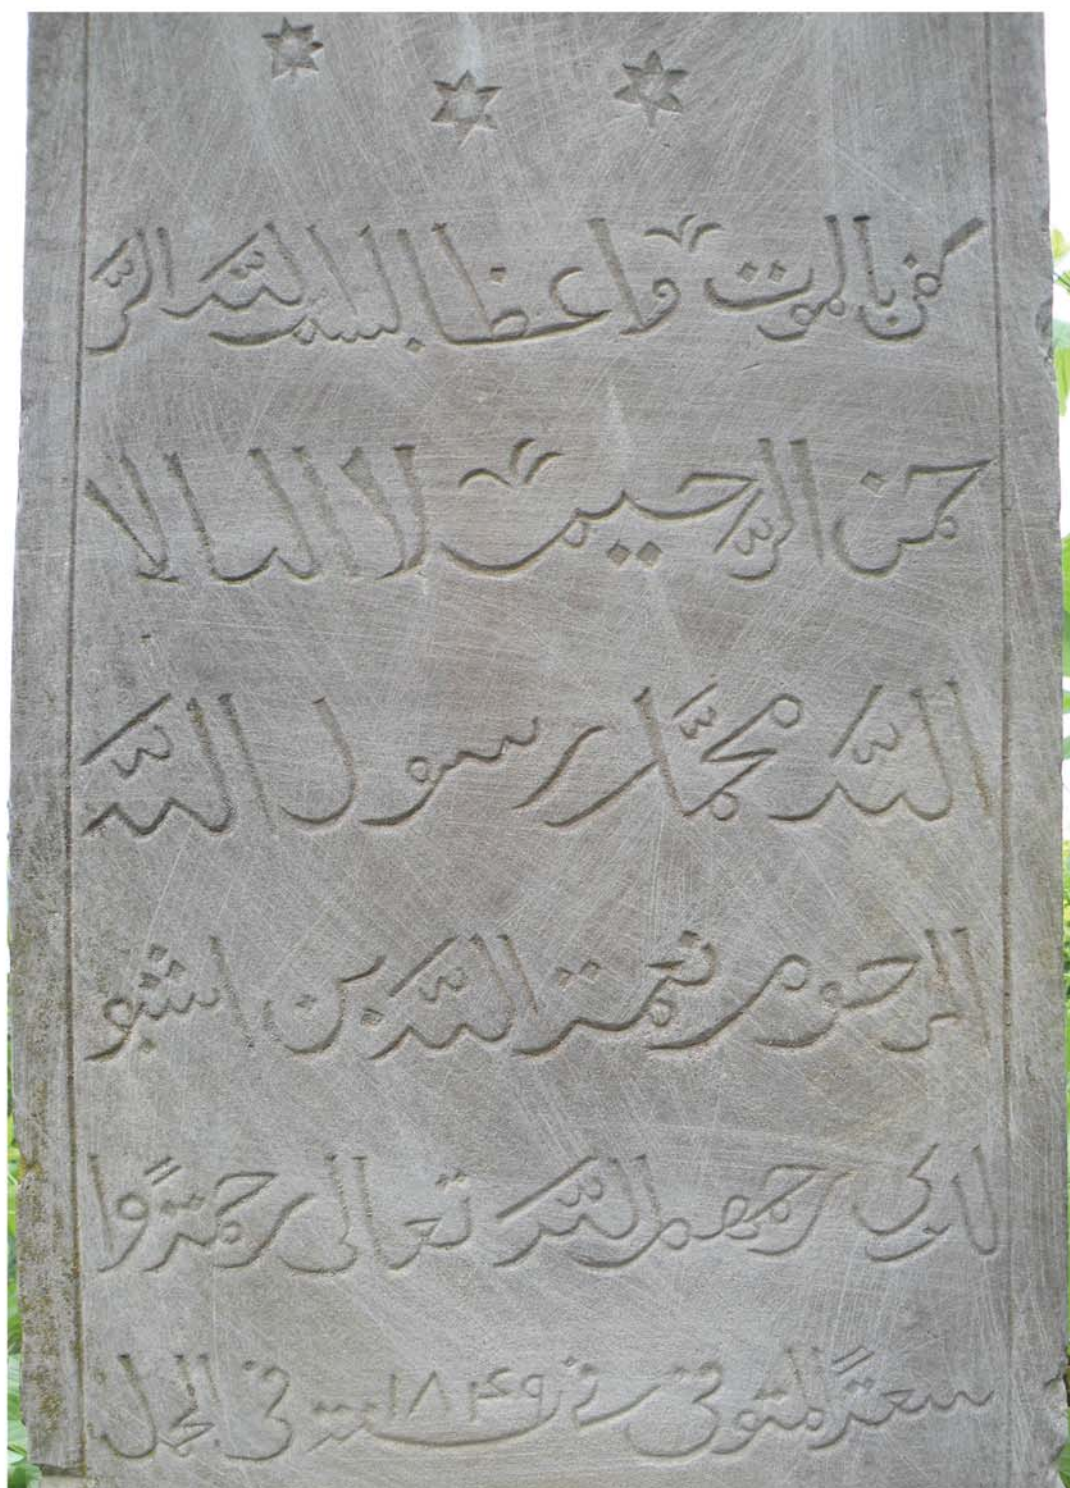 كفى بالموت واعظا بسم الله الر
حمن الرحيم لا اله الا
الله محمد رسول الله
المرحوم نعمة الله بن
رحمهم الله تعالى رحمةً وا
سعةً المتوفى في سنة ١٨٤٩ في